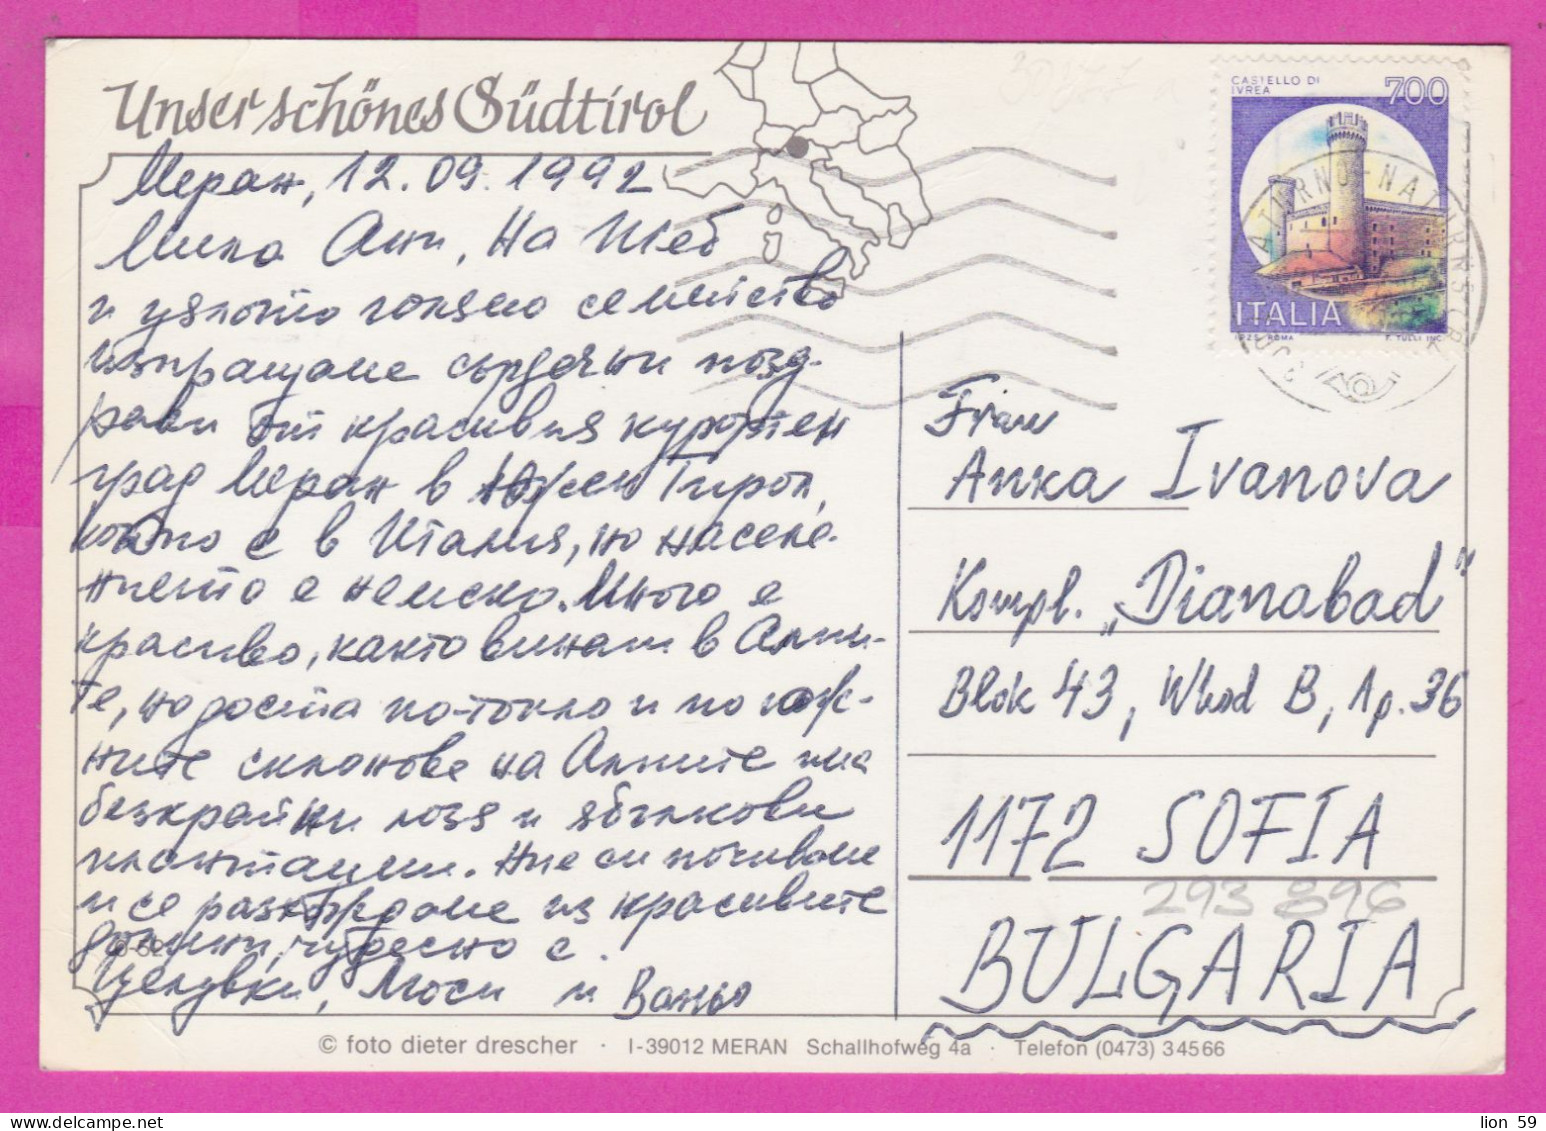 Unser schönes Südtirol
Меран, 12.09.1992
Мила Ани, На Теб
и цялото голямо семейство
изпращаме сърдечни позд-
рави от красивия курортен
град Меран в Южен Тирол,
който е в Италия, но населе-
нието е немско. Много е
красиво, както винаги в Алпи-
те, но доста по-топло и по юж-
ните склонове на Алпите има
безкрайни лозя и ябълкови
плантации. Ние си почиваме
и се разхождаме из красивите
долини, чудесно е.
Целувки, Люси и Ваньо
CASTELLO DI
IVREA
700
ITALIA
I.P.Z.S. ROMA
F. TULLI INC.
NATURNO - NATURNS
Frau
Anka Ivanova
Kompl. „Dianabad"
Blok 43, Vhod B, Ap. 36
1172 SOFIA
293 896
BULGARIA
© foto dieter drescher · I-39012 MERAN Schallhofweg 4a · Telefon (0473) 34566
lion 59